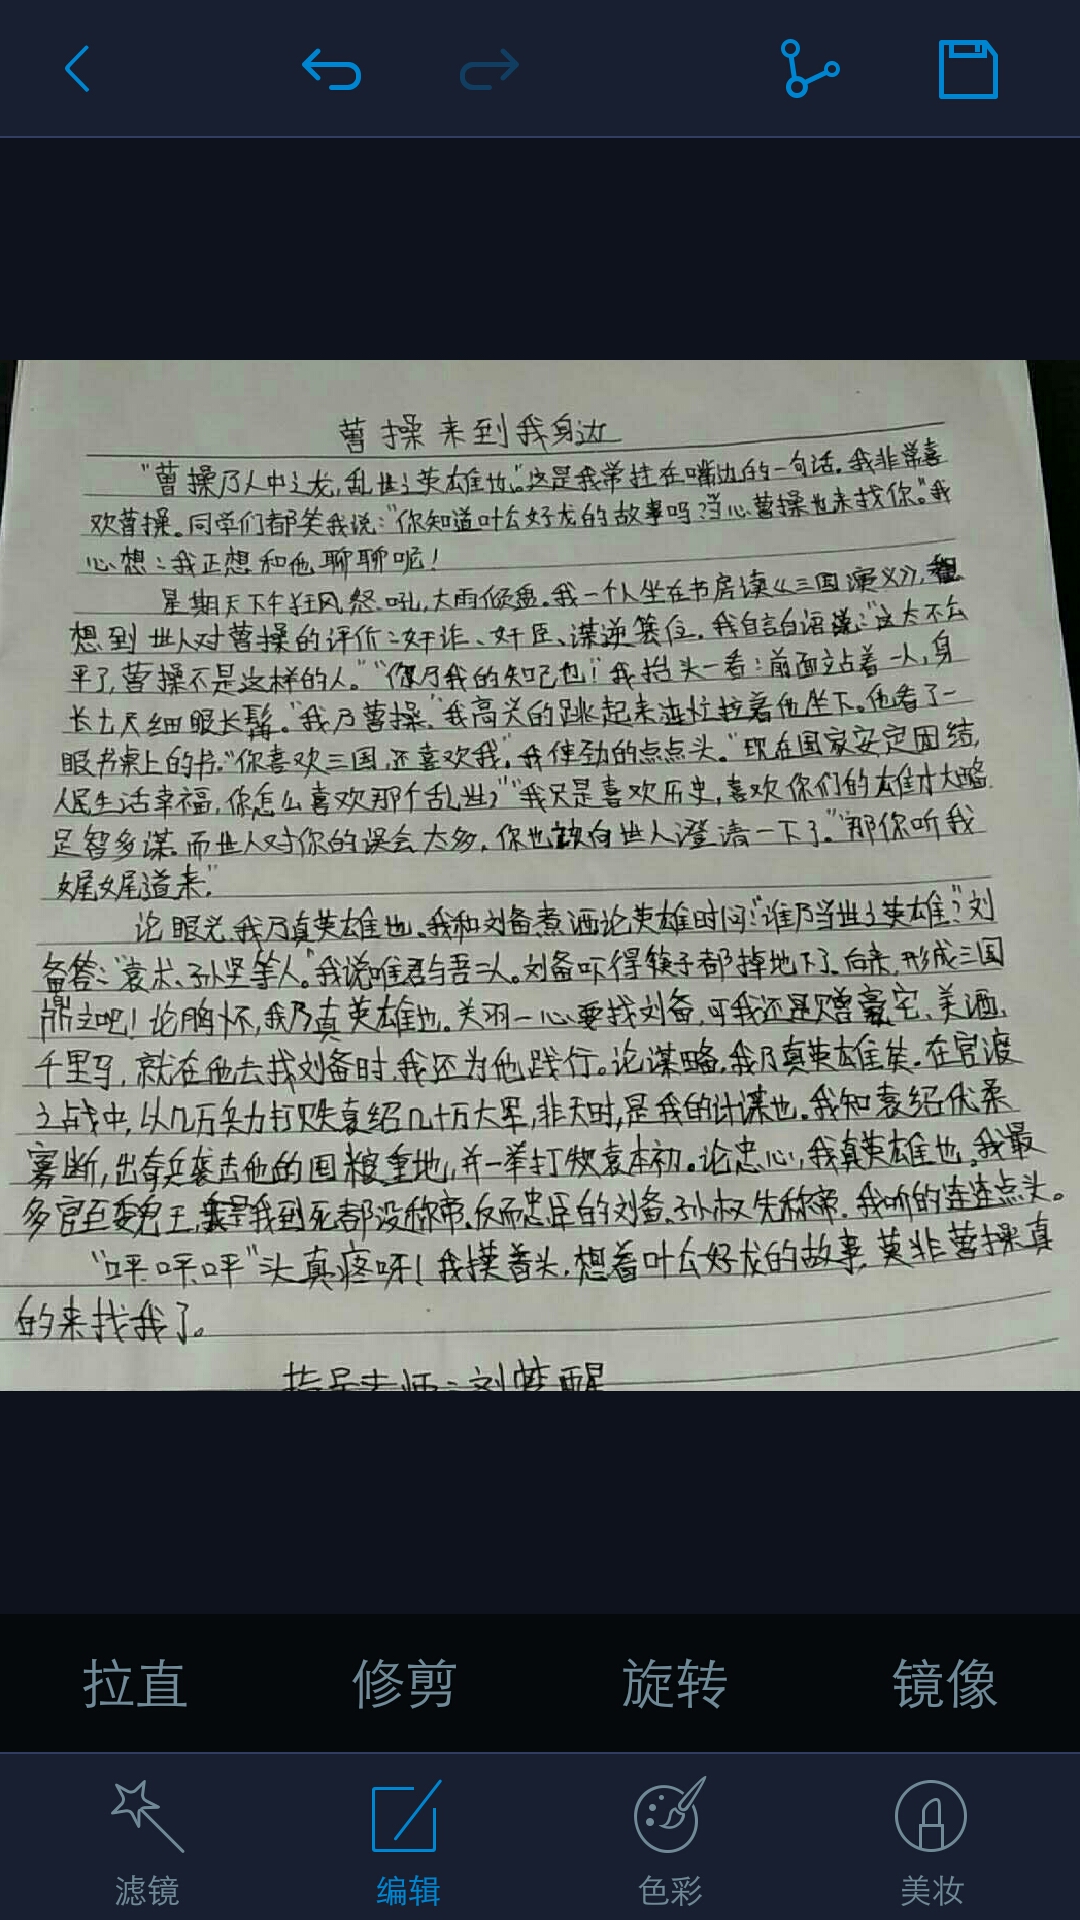 曹操来到我身边
"曹操乃人中之龙,乱世之英雄也。"这是我常挂在嘴边的一句话。我非常喜
欢曹操。同学们都笑我说:"你知道叶公好龙的故事吗?当心曹操也来找你。"我
心想:我正想和他聊聊呢!
星期天下午狂风怒吼,大雨倾盆。我一个人坐在书房读《三国演义》,
想到世人对曹操的评价:奸诈、奸臣、谋逆篡位。我自言自语说:"这太不公
平了,曹操不是这样的人。""你乃我的知己也!"我抬头一看:前面立占着一人,身
长七尺细眼长髯。"我乃曹操。"我高兴的跳起来连忙拉着他坐下。他看了一
眼书桌上的书。"你喜欢三国,还喜欢我"。我使劲的点点头。"现在国家安定团结,
人民生活幸福,你怎么喜欢那个乱世?""我只是喜欢历史,喜欢你们的雄才大略
足智多谋。而世人对你的误会太多,你也该向世人澄清一下了。""那你听我
娓娓道来。"
论眼光,我乃真英雄也。我和刘备煮酒论英雄时问:"谁乃当世之英雄?"刘
备答:"袁术、孙坚等人。"我说唯君与吾二人。刘备吓得筷子都掉地下了。后来,形成三国
鼎立吧!论胸怀,我乃真英雄也。关羽一心要找刘备,可我还是赠豪宅、美酒、
千里马,就在他去找刘备时,我还为他践行。论谋略,我乃真英雄矣。在官渡
之战中,以几万兵力打败袁绍几十万大军,非天时,是我的计谋也。我知袁绍优柔
寡断,出奇兵袭击他的囤粮重地,并一举打败袁本初。论忠心,我真英雄也,我最
多官至魏王,我到死都没称帝。反而忠厚的刘备、孙权先称帝。我听的连连点头。
"呯呯呯"头真疼呀!我摸着头,想着叶公好龙的故事,莫非曹操真
的来找我了。
指导老师:刘梦醒
拉直 修剪 旋转 镜像
滤镜 编辑 色彩 美妆